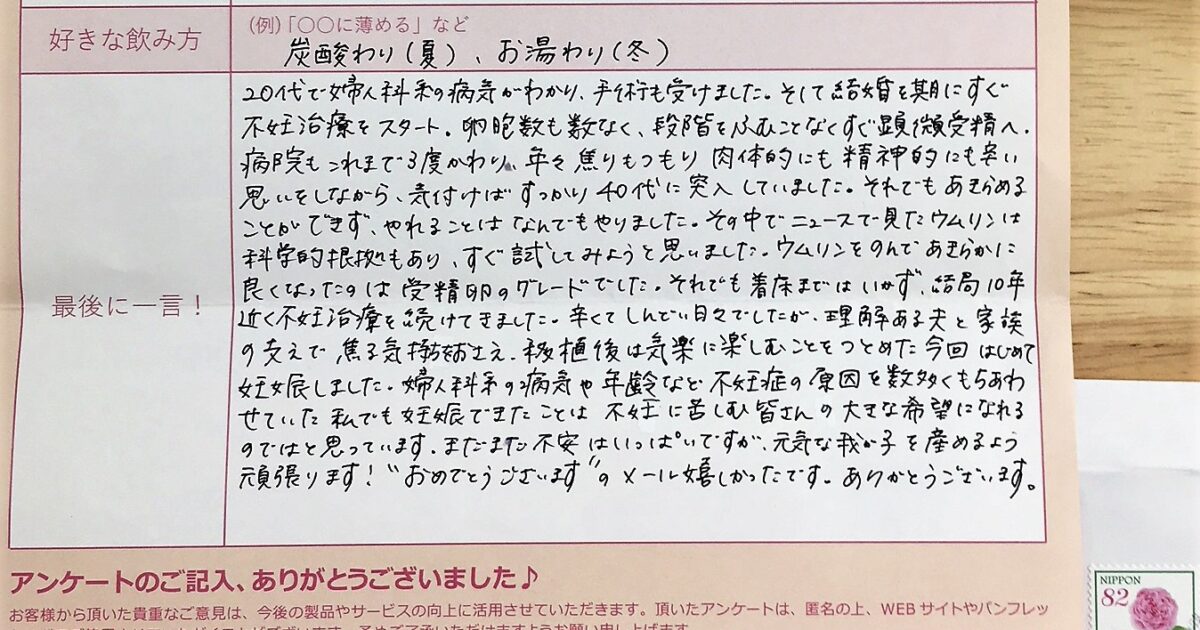 好きな飲み方
(例)「〇〇に薄める」など
炭酸わり(夏)、お湯わり(冬)
最後に一言！
20代で婦人科系の病気がわかり、手術も受けました。そして結婚を期にすぐ
不妊治療をスタート。卵胞数も数なく、段階をふむことなくすぐ顕微受精へ。
病院もこれまで3度かわり、年々焦りもつもり肉体的にも精神的にも辛い
思いをしながら、気付けばすっかり40代に突入していました。それでもあきらめる
ことができず、やれることはなんでもやりました。その中でニュースで見たウムリンは
科学的根拠もあり、すぐ試してみようと思いました。ウムリンをのんであきらかに
良くなったのは受精卵のグレードでした。それでも着床まではいかず、結局10年
近く不妊治療を続けてきました。辛くてしんどい日々でしたが、理解ある夫と家族
の支えで、焦る気持おさえ、移植後は気楽に楽しむことをつとめた今回はじめて
妊娠しました。婦人科系の病気や年齢など不妊症の原因を数多くもちあわ
せていた私でも妊娠できたことは不妊に苦しむ皆さんの大きな希望になれる
のではと思っています。まだまだ不安はいっぱいですが、元気な我が子を産めるよう
頑張ります！"おめでとうございます"のメール嬉しかったです。ありがとうございます。
アンケートのご記入、ありがとうございました♪
お客様から頂いた貴重なご意見は、今後の製品やサービスの向上に活用させていただきます。頂いたアンケートは、匿名の上、WEBサイトやパンフレッ
NIPPON
82